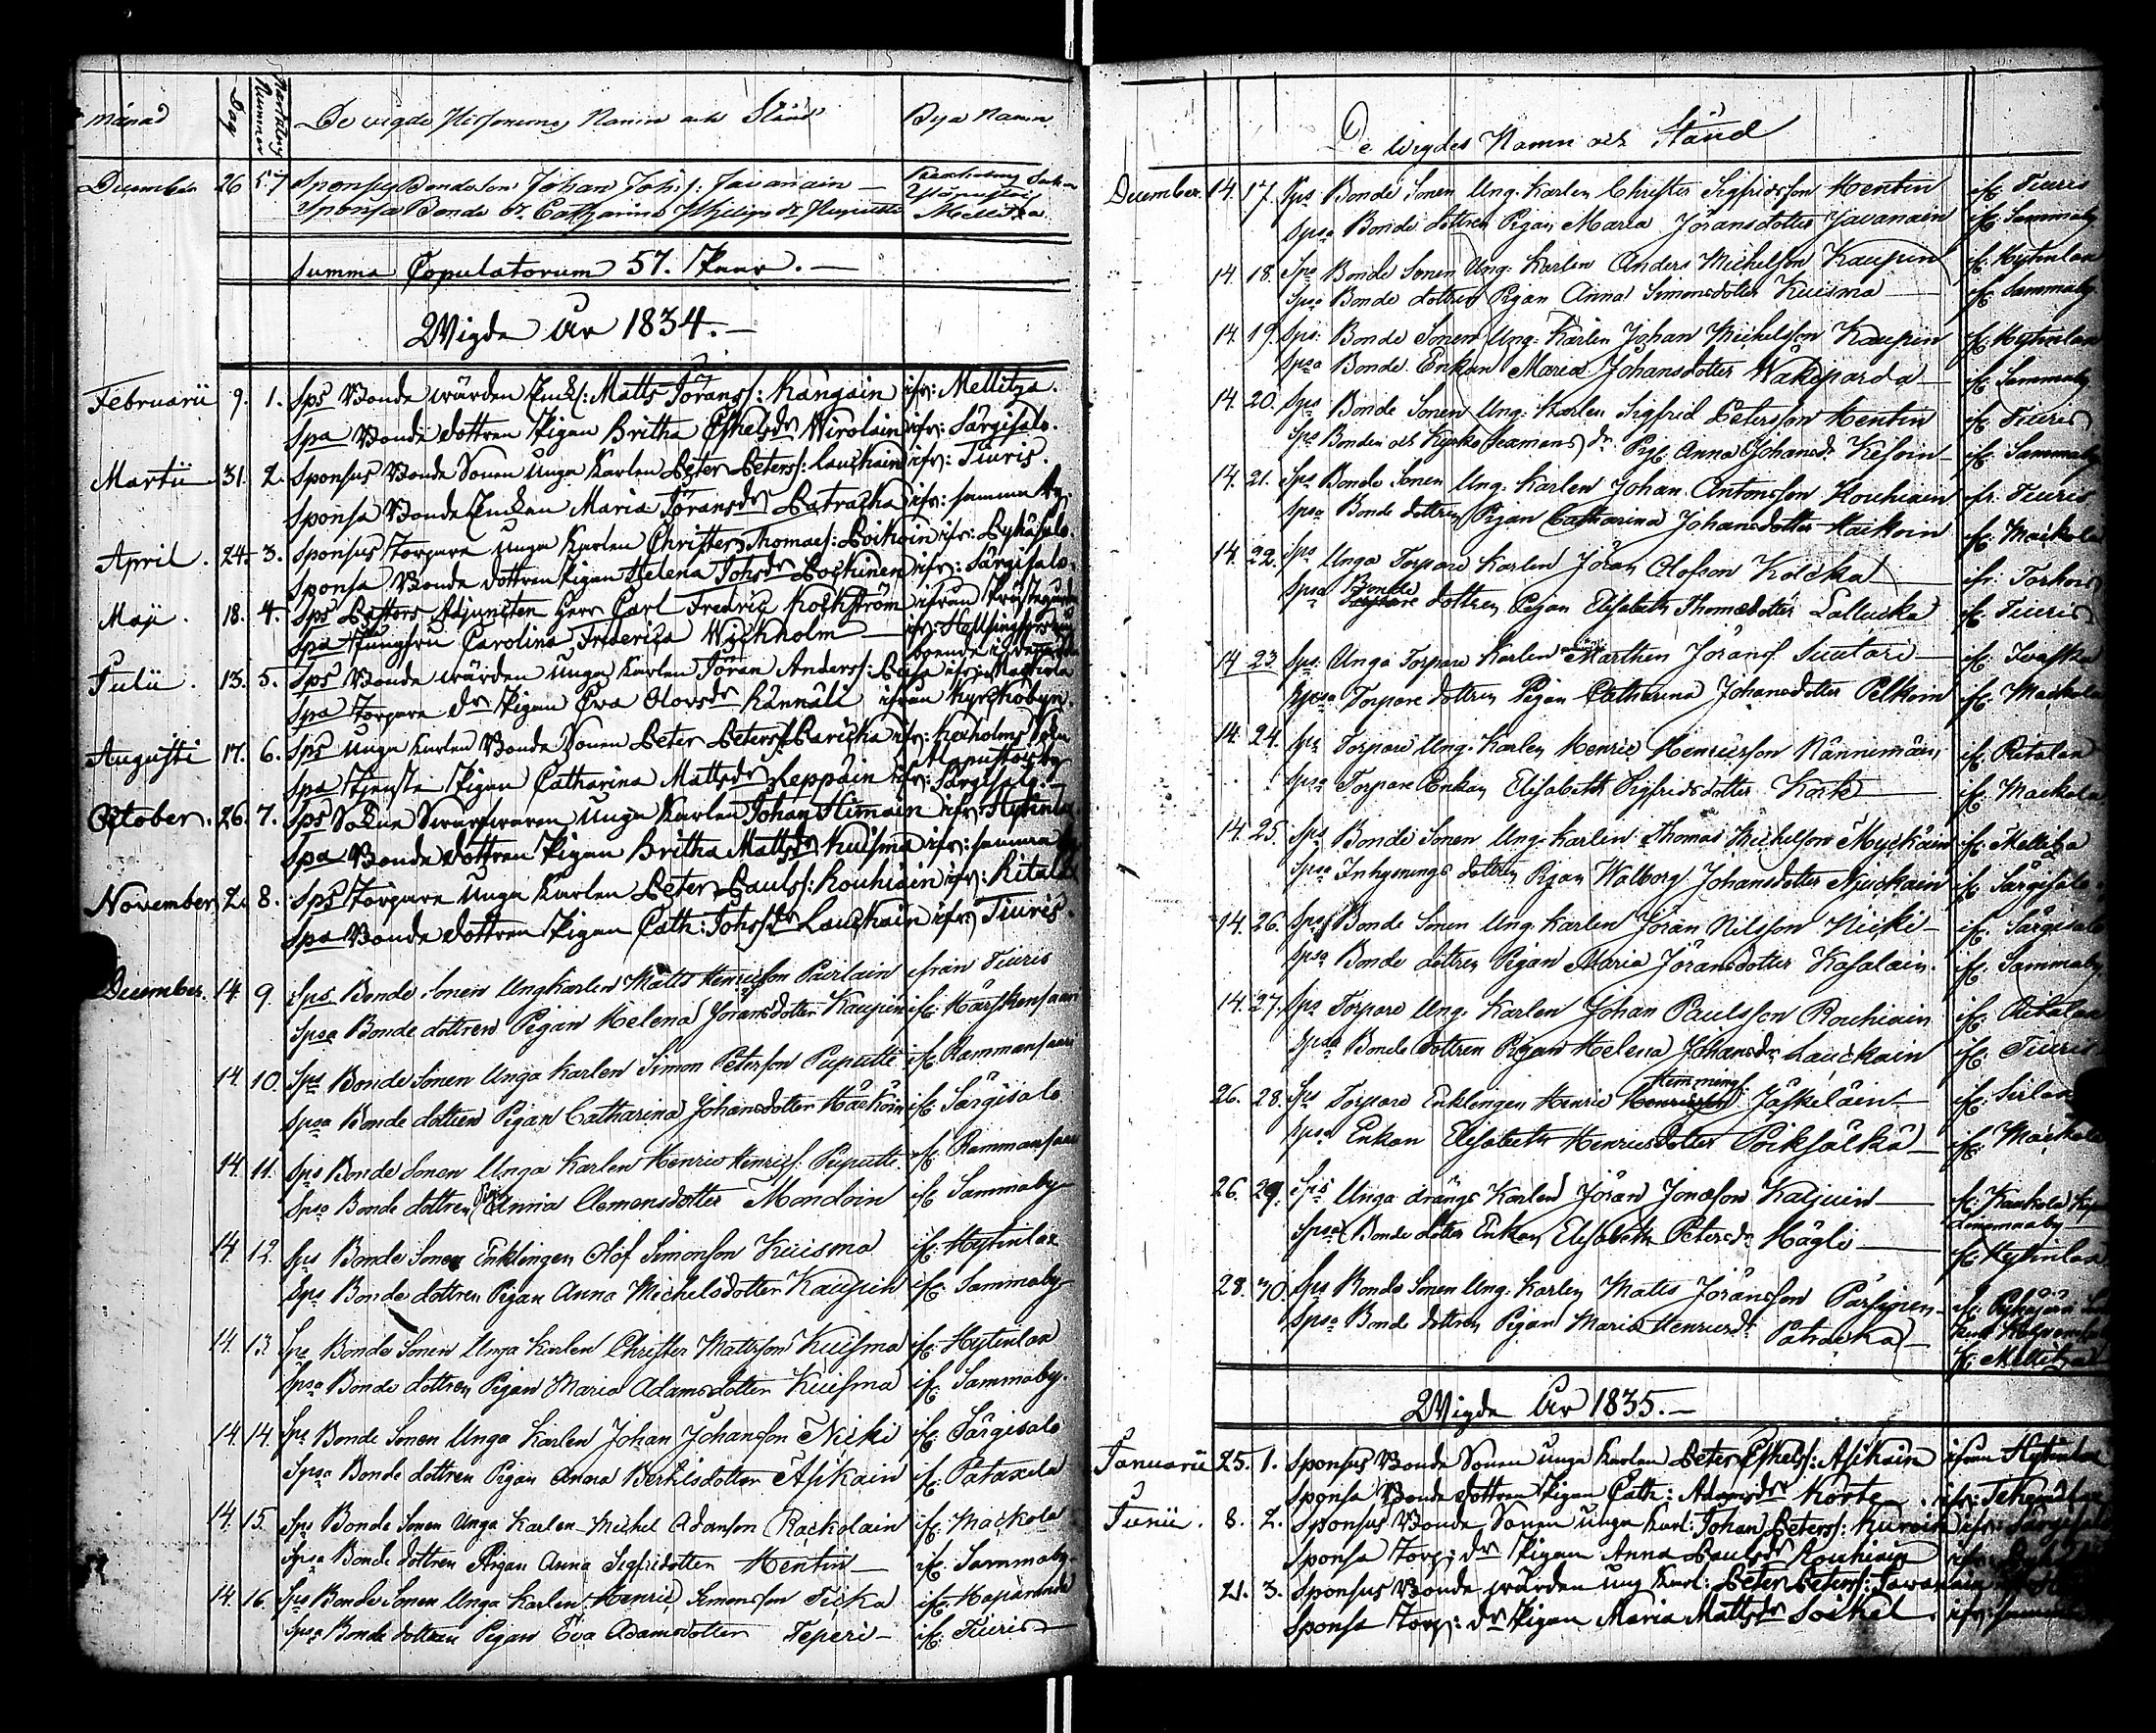 månad Dag Numner De vigde Personernas Namn och Stånd Bya Namn
December 26 57 Sponsus Bonde Son Johan Johs: Javanain —
Sponsa Bonde dr. Catharina Philips dr. Mellitza
Summa Copulatorum 57. Paar. —
Wigde År 1834. —
Februarii 9. 1. Sps Bonde wärden Enkl: Matts Jöranss: Kangain ifr: Mellitza.
Spa Bonde dottren Pigan Britha Eskelsdr Wirolain ifr: Särgisalo.
Martii 31. 2. Sponsus Bonde Sonen Unga Karlen Peter Peterss: Lauckain ifr: Tiuris.
Sponsa Bonde Enckan Maria Jöransdr Patracka ifr: samma by
April. 24. 3. Sponsus Torpare unga Karlen Christer Thomaess: Poikoin ifr: Pyhäsalo.
Sponsa Bonde dottren Pigan Helena Johsdr Pockinen ifr: Särgisalo.
Maji. 18. 4. Sps Pastors Adjuncten Herr Carl Fredric Kockström ifrån Prästegården
Spa Jungfru Carolina Frederica Wickholm — ifr: Helsingfors
boende i
Julii. 13. 5. Sps Bonde wärden unga Karlen Jöran Anderss: ifr: Mackola
Spa Torpare dr Pigan Eva Olovsdr Hännäli ifrån Kyrckobyn.
Augusti 17. 6. Sps unga Karlen Bonde Sonen Peter Peterss: Paricka ifr: Kexholms Sokn
Spa Tjenste Pigan Catharina Mattsdr Leppäin ifr: Särgisalo.
October. 26. 7. Sps Sockne Swarfwaren unga Karlen Johan Himain ifr: Hytinlax
Spa Bonde dottren Pigan Britha Mattsdr Kuisma ifr: samma by
November 2. 8. Sps Torpare unga Karlen Peter Pauls: Rouhiain ifr: Ritalax
Spa Bonde dottren Pigan Cath: Johsdr Lauckain ifr: Tiuris.
December. 14. 9. Sps Bonde Sonen Ungkarlen Matts Henricsson Pairlain ifrån Tiuris
Spsa Bonde dottren Pigan Helena Jöransdotter Kaupin ifr: Harskensaari
14. 10. Sps Bonde Sonen Unga Karlen Simon Peterson Puputti ifr: Rammansaari
Spsa Bonde dottren Pigan Catharina Johansdotter Häcköin ifr: Särgisalo
14. 11. Sps Bonde Sonen Unga Karlen Henric Henrics: Puputti ifr: Rammansaari
Spsa Bonde dottren Pigan Anna Clemensdotter Mondoin ifr: Sammaby
14. 12. Sps Bonde Sonen Enklingen Olof Simonson Kuisma ifr: Hytinlax
Sps Bonde dottren Pigan Anna Michelsdotter Kaupin ifr: Sammaby
14. 13. Sps Bonde Sonen Unga Karlen Christer Mattsson Kuisma ifr: Hytinlax
Spsa Bonde dottren Pigan Maria Adamsdotter Kuisma ifr: Sammaby.
14. 14. Sps Bonde Sonen Unga Karlen Johan Johansson Nicki ifr: Särgisalo
Spsa Bonde dottren Pigan Anna Bertilsdotter Asikain ifr: Pataxela
14. 15. Sps Bonde Sonen Unga Karlen Michel Adamson Räckolain ifr: Mackola
Spsa Bonde dottren Pigan Anna Sigfridotter Hentin — ifr: Sammaby.
14. 16. Sps Bonde Sonen Unga Karlen Henric Simonsson Ticka ifr: Hapärandi
Spsa Bonde dottren Pigan Eva Adamsdotter Teperi — ifr: Tiuris
De Wigdes Namn och Stånd
December. 14. 17. Sps Bonde Sonen Ung: Karlen Christer Sigfridsson Hentin ifr: Tiuris
Spsa Bonde dottren Pigan Maria Jöransdotter Javanain ifr: Sammaby
14. 18. Sps Bonde Sonen Ung: Karlen Anders Michelson Kaupin ifr: Hytinlax
Spsa Bonde dottren Pigan Anna Simonsdotter Kuisma — ifr: Sammaby.
14. 19. Sps: Bonde Sonen Ung: Karlen Johan Michelsson Kaupin ifr: Hytinlax
Spsa Bonde Enkan Maria Johansdotter Wäkiparda — ifr: Sammaby
14. 20. Sps Bonde Sonen Ung: Karlen Sigfrid Petersson Hentin ifr: Tiuris
Sps Bonden och Kyrko dr Pig: Anna Johansdr Kesoin — ifr: Sammaby
14. 21. Sps Bonde Sonen Ung: Karlen Johan Antonsson Rouhiain fr. Tiuris
Spsa Bonde dottren Pigan Catharina Johansdotter Häckoin ifr: Mackola
14. 22. Sps Unga Torpare Karlen Jöran Olofson Kolcka — ifr: Torhois
Spsa Bonde dottren Pigan Elisabeth Thomasdotter Lallucka ifr: Tiuris
14 23. Sps: Unga Torpare Karlen Marthen Jörans: Suutari — ifr: Ivaska
Spsa Torpare dottren Pigan Catharina Johansdotter Pelkoin ifr: Mackola
14. 24. Sps Torpare Ung: Karlen Henric Henricsson Nännimäin ifr: Ritalax
Spsa Torpare Enkan Elisabeth Sigfridsdotter Korte — ifr: Mackola
14. 25. Sps Bonde Sonen Ung: Karlen Thomas Michelson Myckäin ifr: Mellitza
Spsa Inhysnings dottren Pigan Walborg Johansdotter Njuckain ifr: Särgisalo.
14. 26. Sps Bonde Sonen Ung: Karlen Jöran Nilsson Nicki — ifr: Särgisalo
Spsa Bonde dottren Pigan Maria Jöransdotter Kasalain. ifr: Sammaby
14. 27. Sps Torpare Ung: Karlen Johan Paulsson Rouhiain ifr: Ritalax
Spsa Bonde Dottren Pigan Helena Johansdr Lauckain ifr: Tiuris
26. 28. Sps Torpare Enklingen Henric Hemmings: Jäskeläin — ifr: Sirlax
Spsa Enkan Elisabeth Henricsdotter Poiksälkä — ifr: Mackola
26. 29. Sps Unga drängs Karlen Jöran Jonasson Kaljuin — ifr: Kaukola
Spsa Bonde dotter Enkan Elisabeth Petersdr Hägli — ifr: Hytinlax
28. 30. Sps Bonde Sonen Ung: Karlen Matts Jöransson Pärsinen — ifr: Pyhäjärvi
Spsa Bonde dottren Pigan Maria Henricsdr Patracka — ifr: Mellitza
Wigde År 1835. —
Januarii 25. 1. Sponsus Bonde Sonen unga Karlen Peter Eskels: Asikain ifrån Hytinlax
Sponsa Bonde dottren Pigan Cath: Adamsdr Korte ifr:
Junii. 8. 2. Sponsus Bonde Sonen unga Karl: Johan Peterss: Kuroin ifr: Särgisalo
Sponsa Torp: dr Pigan Anna Paulsdr Rouhiain
21. 3. Sponsus Bonde wärden ung Karl: Peter Peterss: Jawanain
Sponsa Torp: dr Pigan Maria Mattsdr Soikel ifr: samma